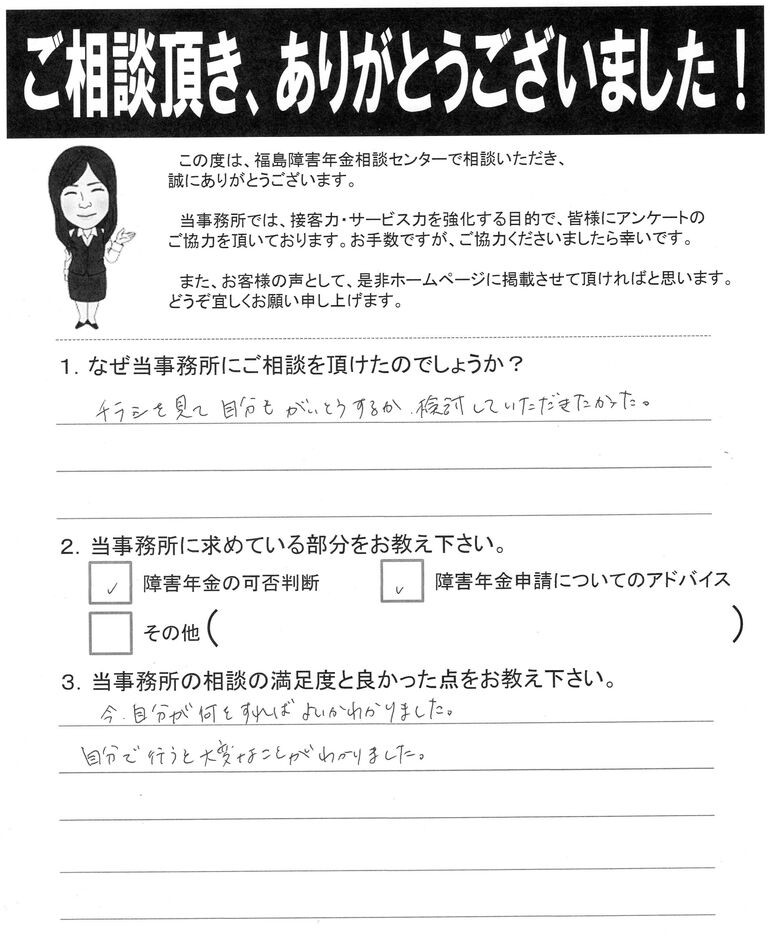 ご相談頂き、ありがとうございました！
この度は、福島障害年金相談センターで相談いただき、
誠にありがとうございます。
当事務所では、接客力・サービス力を強化する目的で、皆様にアンケートの
ご協力を頂いております。お手数ですが、ご協力くださいましたら幸いです。
また、お客様の声として、是非ホームページに掲載させて頂ければと思います。
どうぞ宜しくお願い申し上げます。
1. なぜ当事務所にご相談を頂けたのでしょうか？
チラシを見て自分もがいとうするか、検討していただきたかった。
2. 当事務所に求めている部分をお教え下さい。
✓ 障害年金の可否判断 ✓ 障害年金申請についてのアドバイス
その他（ ）
3. 当事務所の相談の満足度と良かった点をお教え下さい。
今、自分が何をすればよいかわかりました。
自分で行うと大変なことがわかりました。